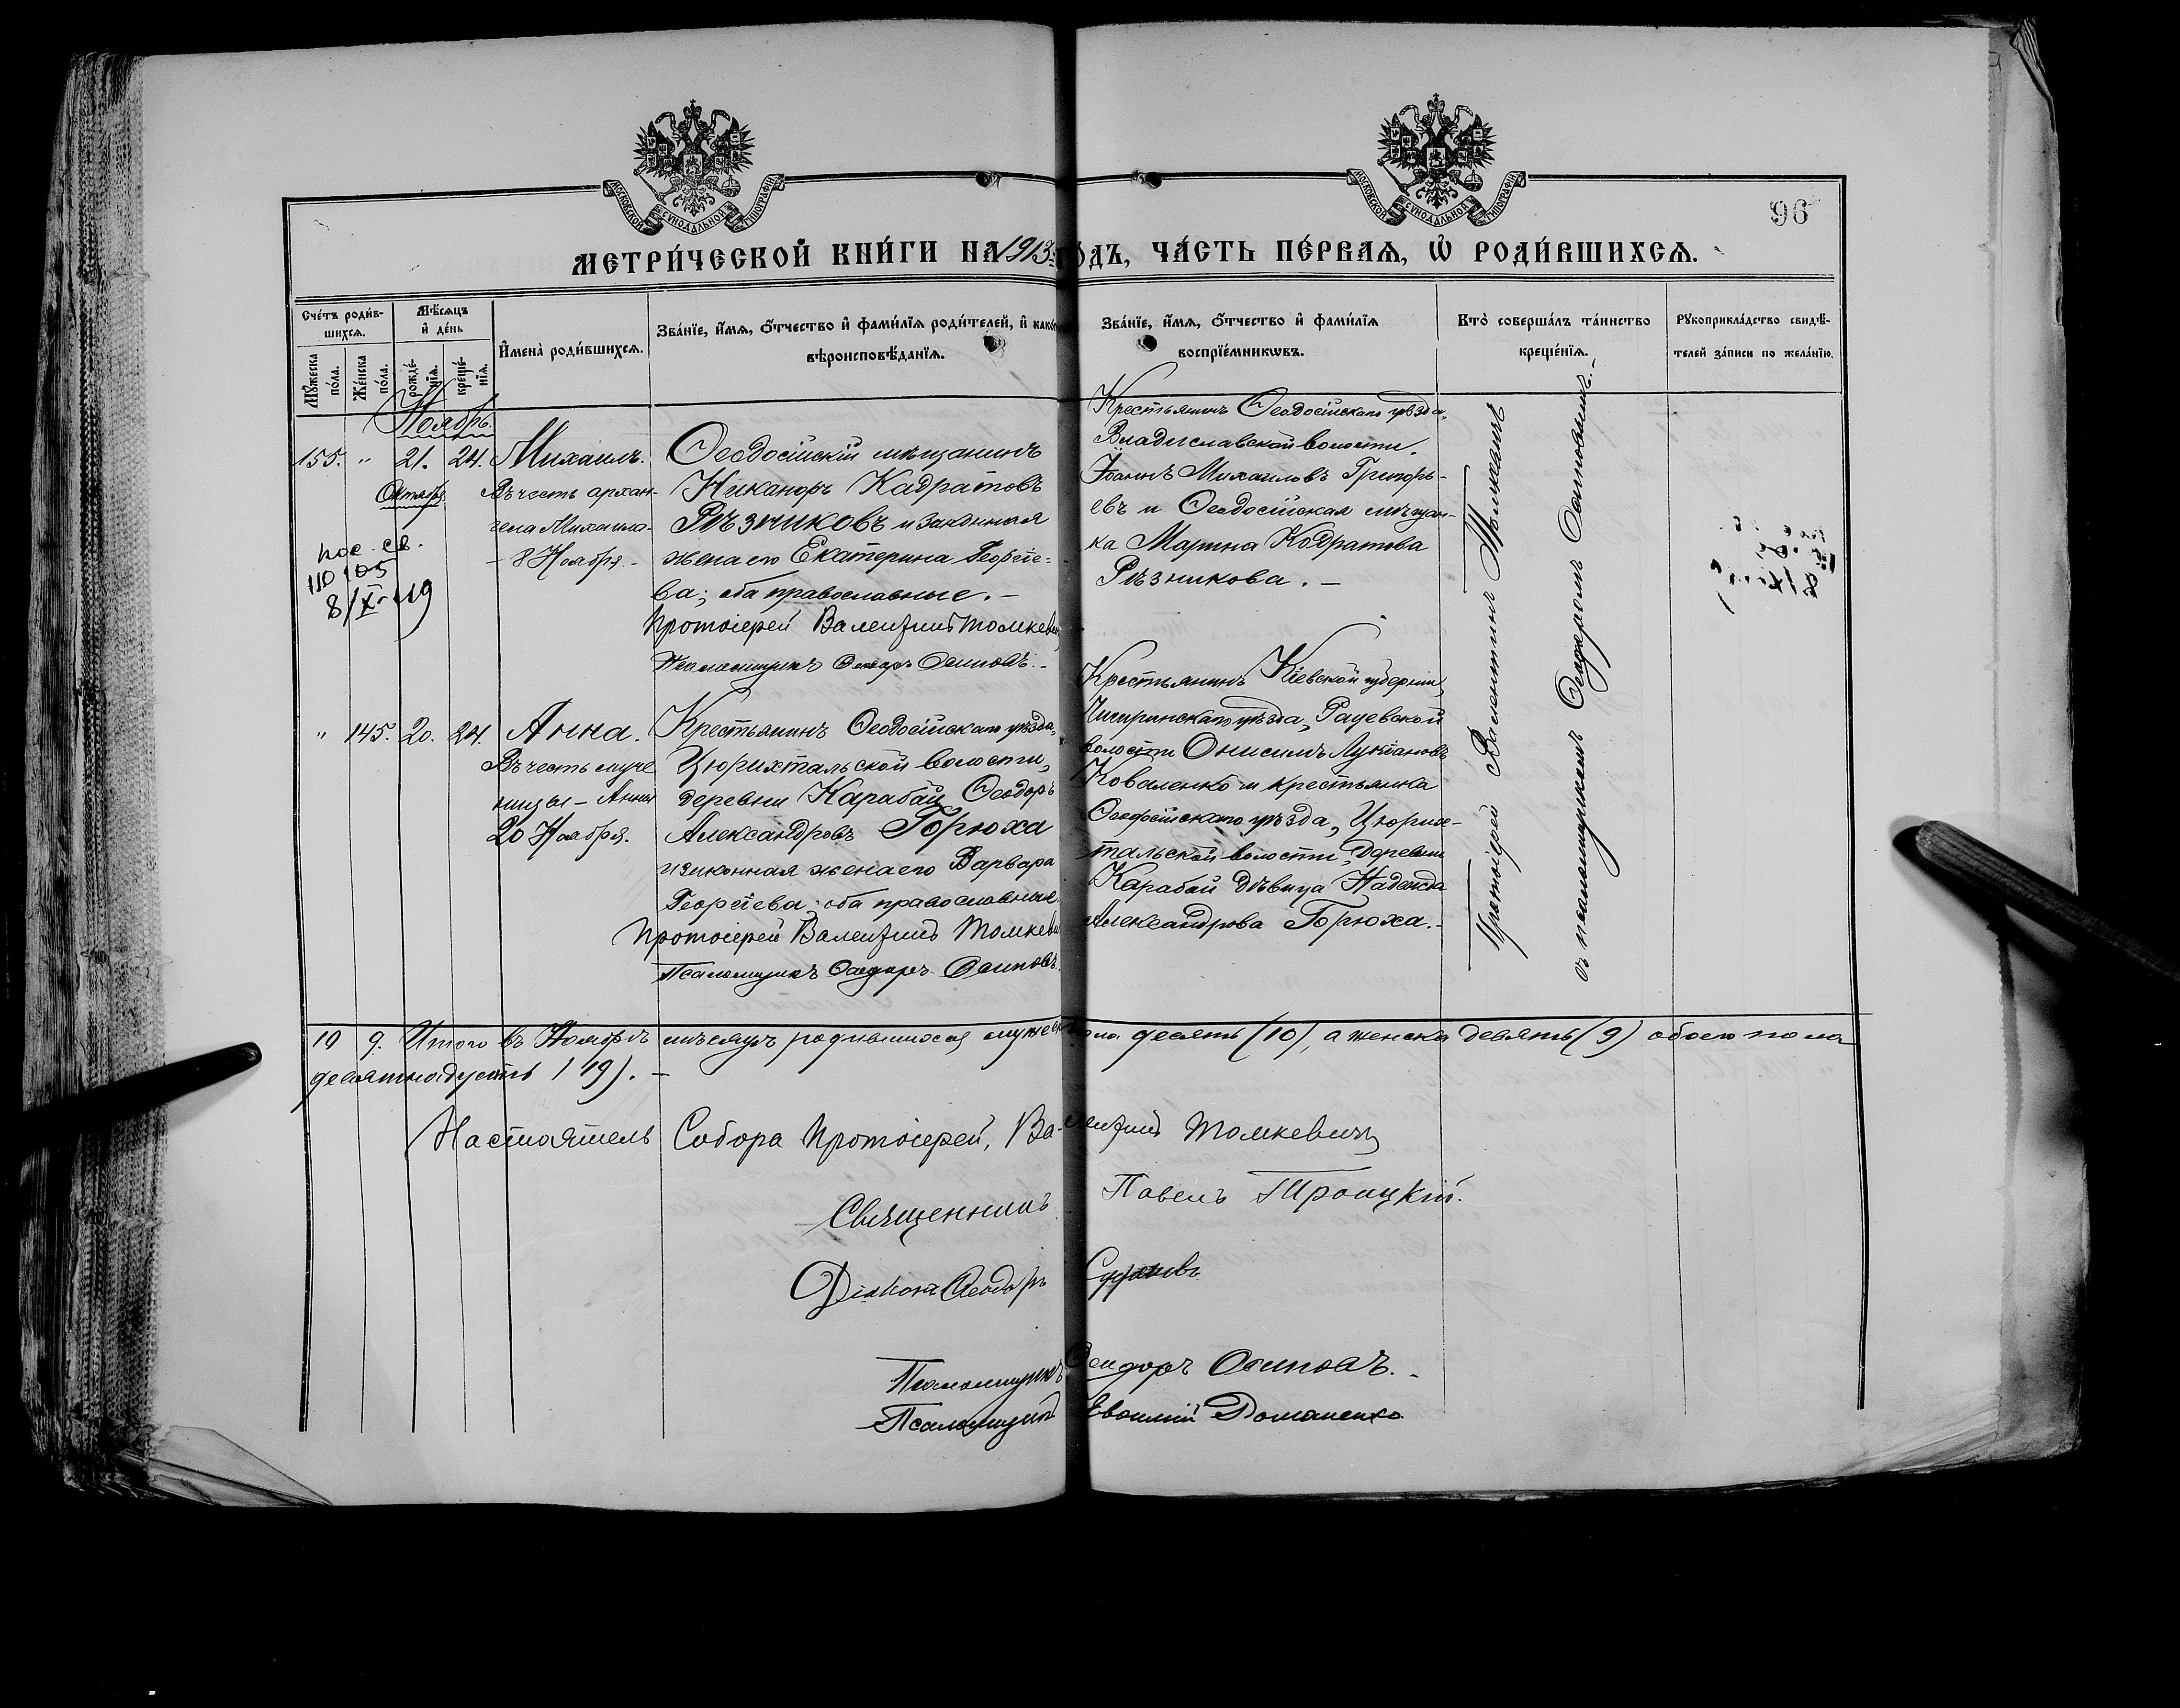 МОСКОВСКОЙ СѴНОДАЛЬНОЙ ТИПОГРАФІИ
МОСКОВСКОЙ СѴНОДАЛЬНОЙ ТИПОГРАФІИ
96
МЕТРИ́ЧЕСКОЙ КНИ́ГИ НА 1913 ГО́ДЪ, ЧА́СТЬ ПЕ́РВАѦ, Ѡ҆ РОДИ́ВШИХСѦ.
Сче́тъ роди́в-
шихсѧ.
Мꙋ́жеска по́ла.
Же́нска по́ла.
Мѣ́сѧцъ и҆ де́нь
рожде́-нїѧ.
креще́-нїѧ.
И҆мена̀ роди́вшихсѧ.
Зва́нїе, и҆́мѧ, ѻ҆́тчество и҆ фами́лїѧ роди́телей, и҆ како́гѡ
вѣроисповѣ́данїѧ.
Зва́нїе, и҆́мѧ, ѻ҆́тчество и҆ фами́лїѧ
воспрїе́мникѡвъ.
Кто̀ соверша́лъ та́инство
креще́нїѧ.
Рꙋкоприкла́дство свидѣ́-
телей за́писи по жела́нїю.
Ноябрь.
155. " 21. 24. Михаилъ.
Октябрь
Въ честь архан-
гела Михаила
- 8 Ноября. -
пос. св.
110105
8/X-19
Ѳеодосійскій мѣщанинъ
Никаноръ Кадратовъ
Рѣзниковъ и законная
жена его Екатерина Георгіе-
ва; оба православные. -
Протоіерей Валентинъ Томкевич
Псаломщикъ Ѳеодоръ Осиповъ. -
Крестьянинъ Ѳеодосійскаго уѣзда,
Владиславской волости,
Іоаннъ Михаиловъ Григорь-
евъ и Ѳеодосійская мѣщан-
ка Марина Кодратова
Рѣзникова. -
" 145. 20. 24. Анна.
Въ честь муче
ницы - Анны
20 Ноября.
Крестьянинъ Ѳеодосійскаго уѣзда,
Цюрихтальской волости,
деревни Карабай Ѳеодоръ
Александровъ Горюха
и законная жена его Варвара
Георгіева; оба православные
Протоіерей Валентинъ Томкевич
Псаломщикъ Ѳеодоръ Осиповъ.
Крестьянинъ Кіевской губерніи,
Чигиринскаго уѣзда, Рацевской
волости Онисимъ Лукіановъ
Коваленко и крестьянка
Ѳеодосійскаго уѣзда, Цюрих-
тальской волости, деревни
Карабай дѣвица Надежда
Александрова Горюха. -
Протоіерей Валентинъ Томкевичъ
съ псаломщикомъ Ѳеодоромъ Осиповымъ. -
10 9. Итого въ Ноябрѣ мѣсяцѣ родившихся мужеска пола десять (10), а женска девять (9) обоего пола
девятнадцать (19). -
Настоятель Собора Протоіерей, Валентинъ Томкевичъ
Священникъ Павелъ Троицкій.
Діаконъ Ѳеодоръ
Псаломщикъ Ѳеодоръ Осиповъ. -
Псаломщикъ Евѳимій Доманенко